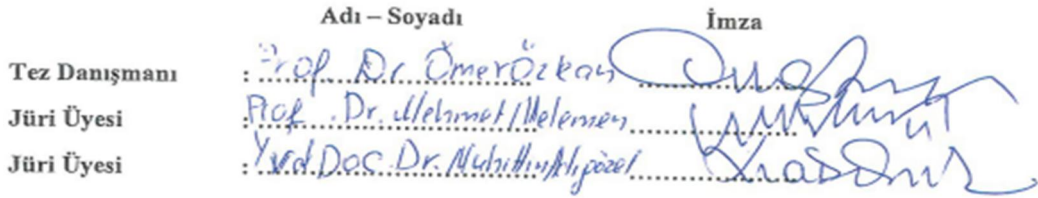 Adı – Soyadı İmza
Tez Danışmanı : Prof. Dr. Ömer Özkan
Jüri Üyesi Prof. Dr. Mehmet Melemen
Jüri Üyesi : Yrd. Doç. Dr. Muhittin